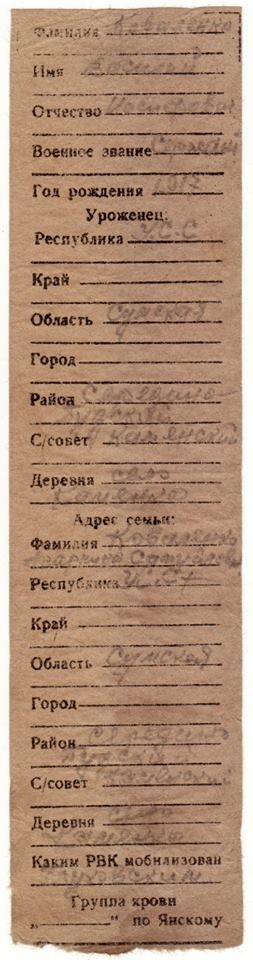 Фамилия Коваленко
Имя Василий
Отчество Иосифович
Военное звание Сержант
Год рождения 1917
Уроженец:
Республика УССР
Край
Область Сумская
Город
Район Середино-
Будский
С/совет Каменский
Деревня село
Каменка
Адрес семьи:
Фамилия Коваленко
Республика УССР
Край
Область Сумская
Город
Район Середино
Будский
С/совет Каменский
Деревня село
Каким РВК мобилизован
Группа крови
„ “ по Янскому